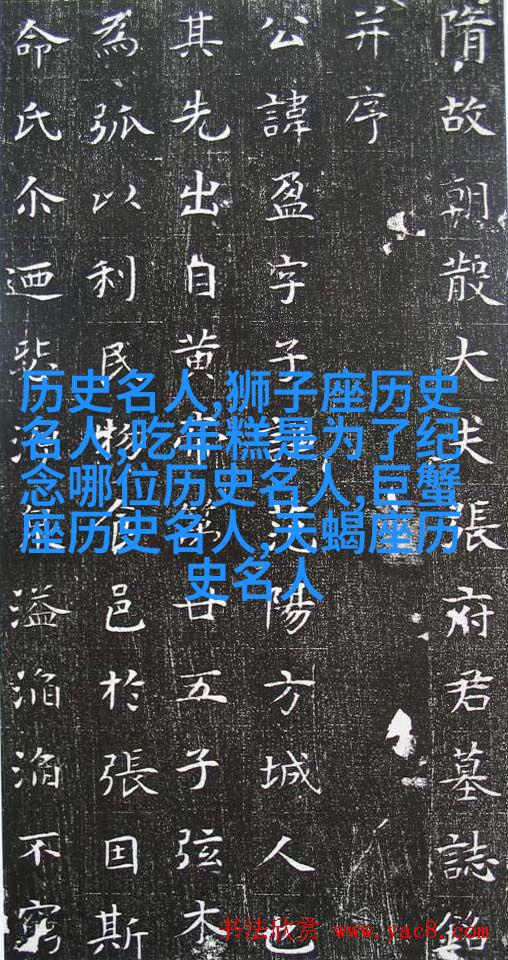 隋故朝散大夫張府君墓誌銘
并序
公諱盈字子陽方城人也
其先出自黄帝第廿五子弦木
為弧以利民物食邑於張因斯
命氏尒廼溢滔滔不窮
历史名人,狮子座历史
名人,吃年糕是为了纪
念哪位历史名人,巨蟹
座历史名人,天蝎座历
史名人
书法欣赏 www.yac8.com